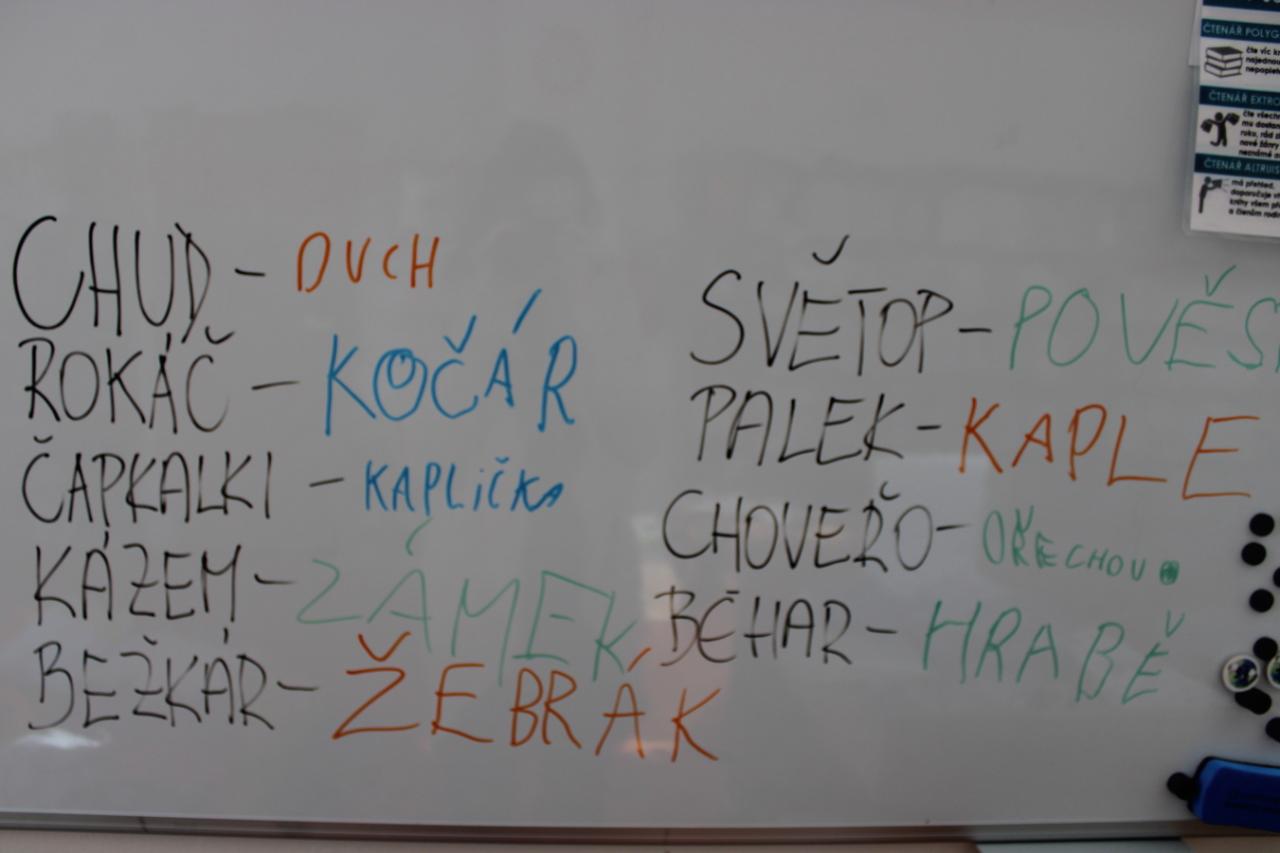 CHUD - DUCH
ROKÁČ - KOČÁR
ČAPKALKI - KAPLiČKA
KÁZEM - ZÁMEK
BEŽKÁR - ŽEBRÁK
SVĚTOP - POVĚS
PALEK - KAPLE
CHOVEŘO - OŘECHOV
BĚHAR - HRABĚ
ČTENÁŘ POLYG
čte víc k
najednou
ČTENÁŘ EXTRO
čte všech
nové žánry
ČTENÁŘ ALTRUIS
má přehled,
doporučuje
knihy všem